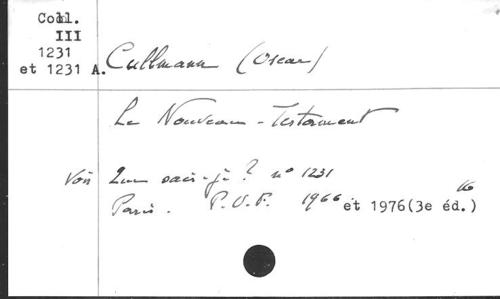 Coll.
III
1231
et 1231 A.
Cullmann (Oscar)
Le Nouveau-Testament
Voir Que sais-je? n° 1231
Paris. P.U.F. 1966 et 1976(3e éd.)